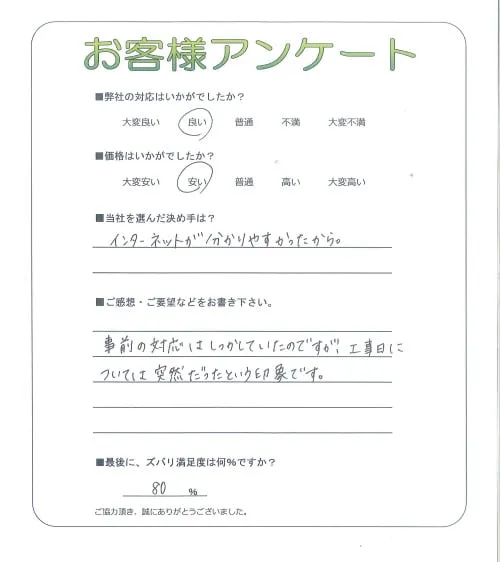 お客様アンケート
■弊社の対応はいかがでしたか?
大変良い 良い 普通 不満 大変不満
■価格はいかがでしたか?
大変安い 安い 普通 高い 大変高い
■当社を選んだ決め手は?
インターネットが分かりやすかったから。
■ご感想・ご要望などをお書き下さい。
事前の対応はしっかしていたのですが、工事日に
ついては突然だったという印象です。
■最後に、ズバリ満足度は何%ですか?
80 %
ご協力頂き、誠にありがとうございました。